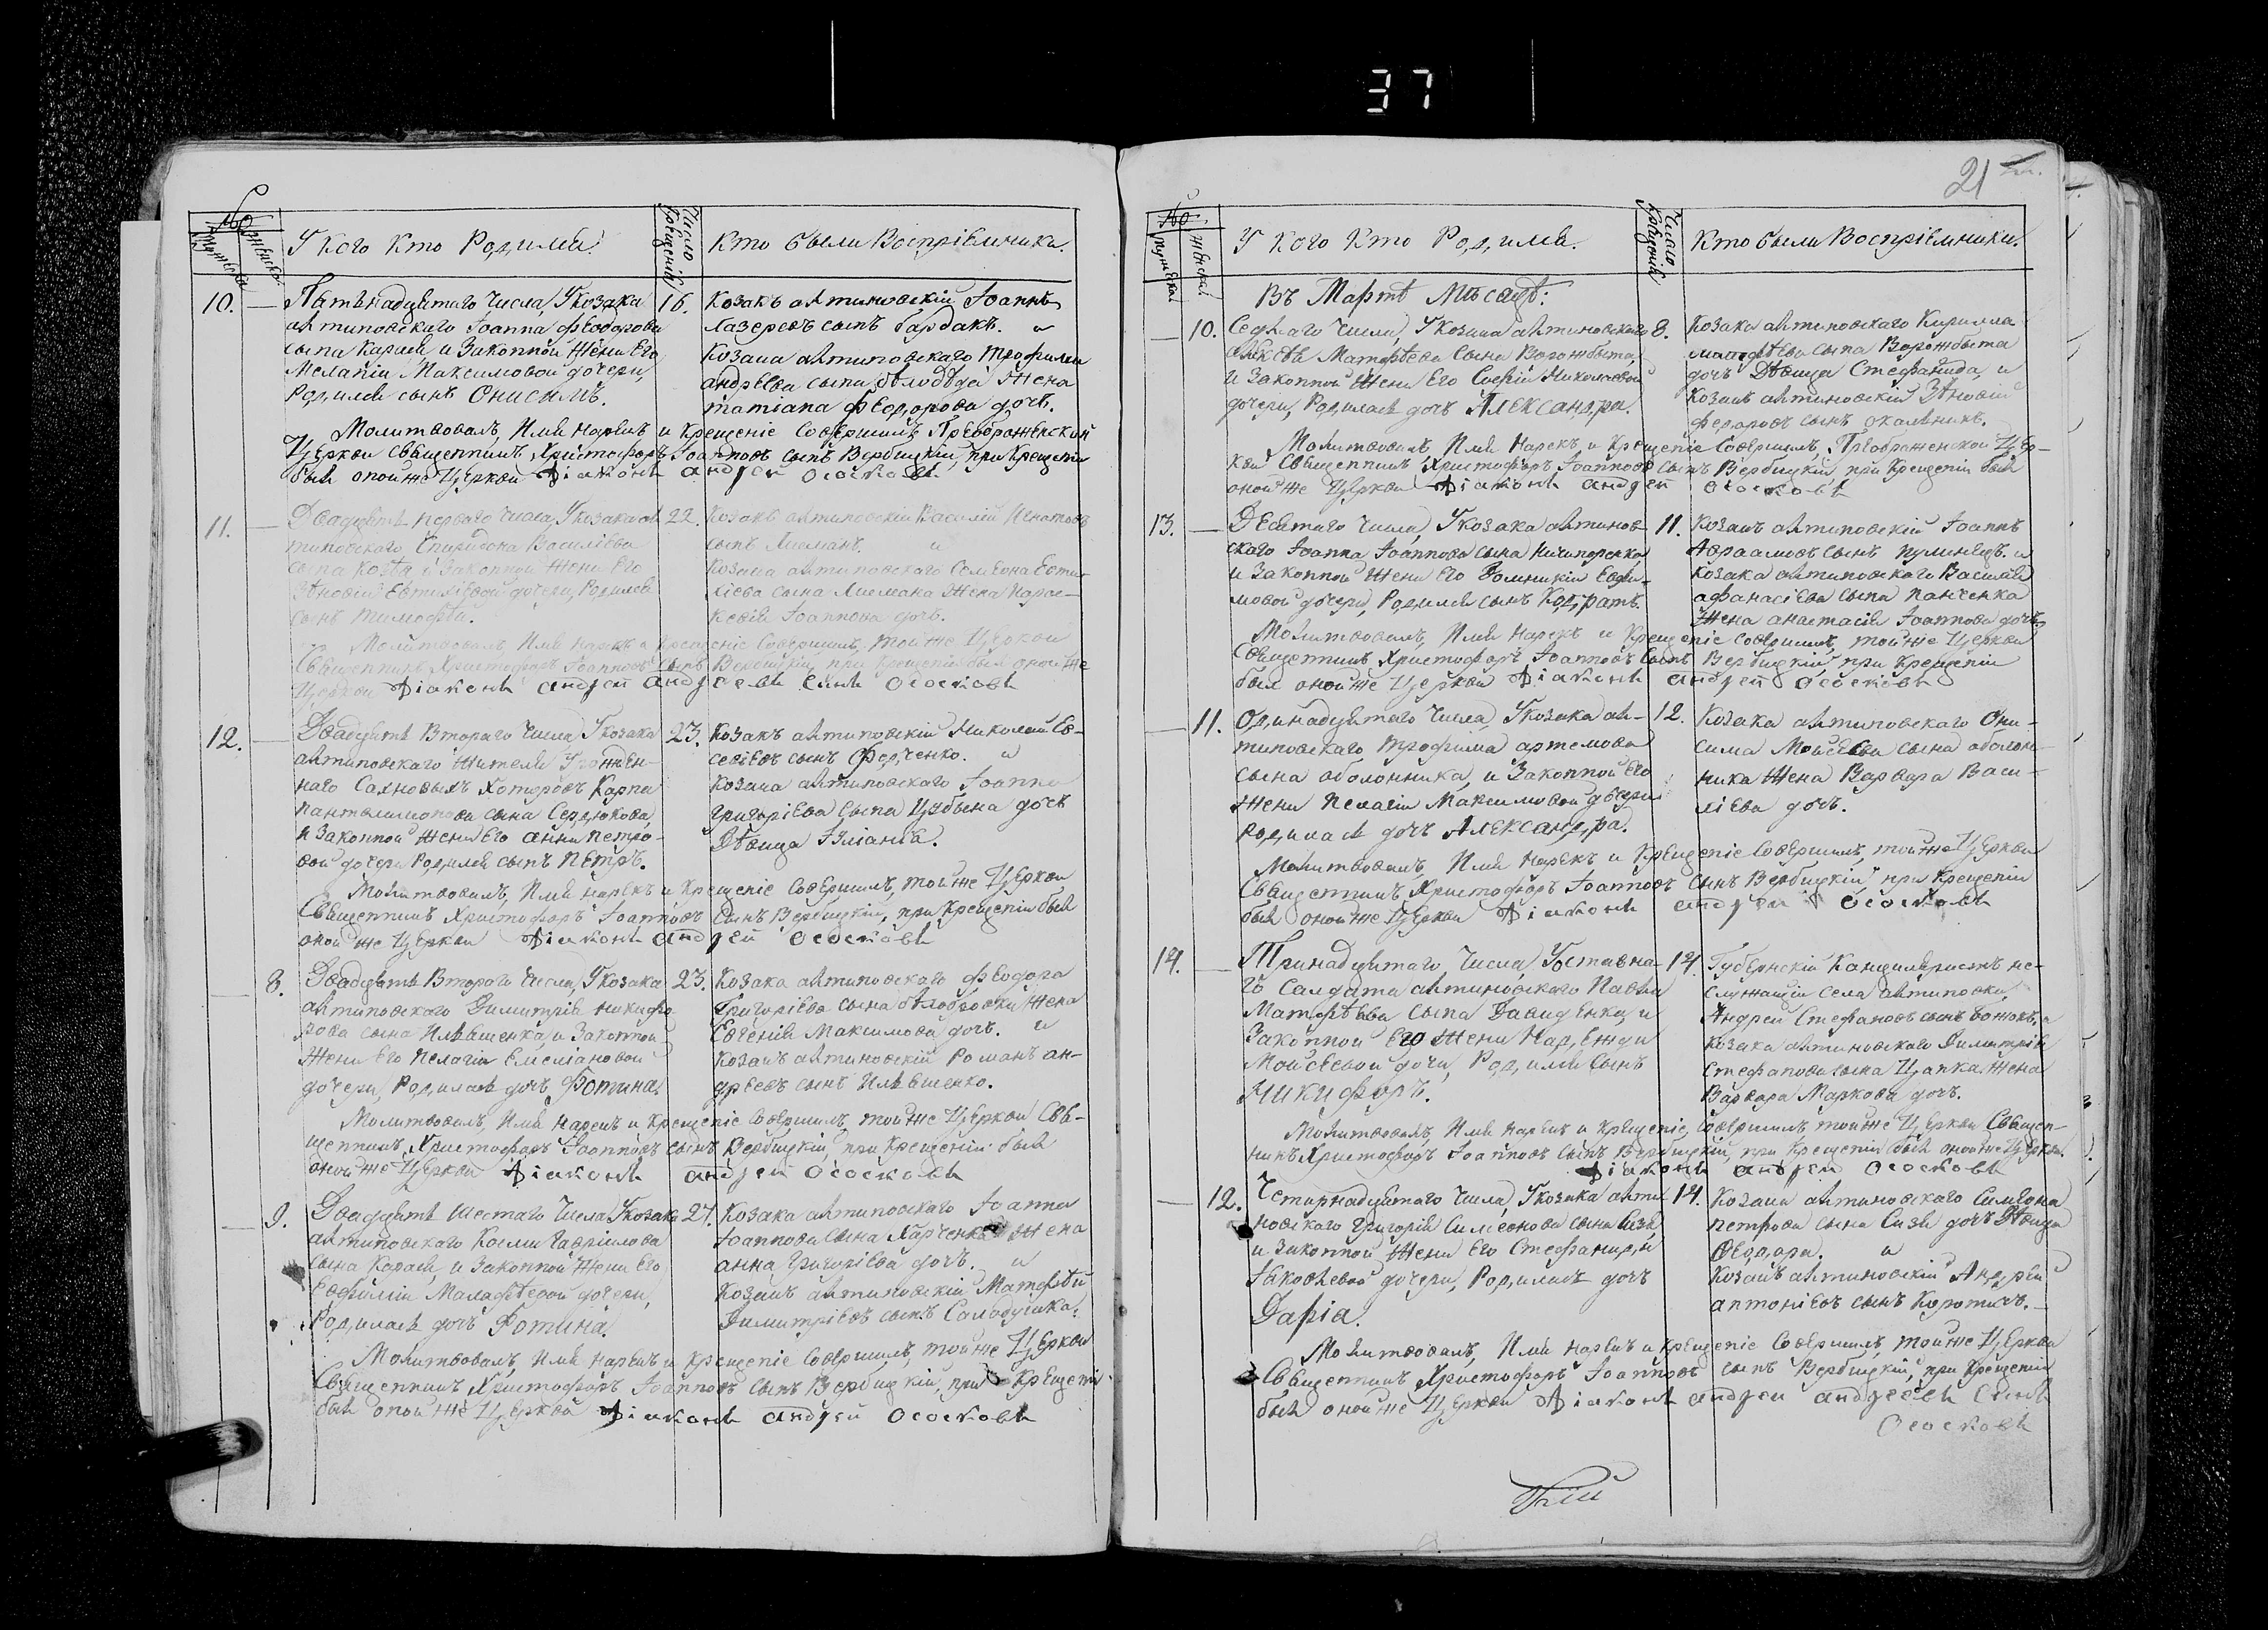 37
21
№
мужеска
женска
У кого кто Родился.
Число Крещенія
Кто были Воспріемники.
10. — Пятьнадцятаго Числа, У козака
антиповскаго Іоанна Феодорова
сына Карася, и Законной Жены Его
Меланіи Максимовой дочери,
Родился сынъ Онисимъ.
16. Козакъ антиповскій Іоаннъ
Лазаревъ сынъ Бардакъ. и
Козака антиповскаго Трофима
андрѣева сына бѣлодѣда Жена
татіана Феодорова дочь.
Молитвовалъ, Имя нарекъ и Крещеніе Совершилъ Преображенской
Церкви Священникъ Христофоръ Іоанновъ сынъ Вербицкій, при Крещеніи
былъ оной же Церкви Діаконъ андрей Ососковъ
11. — Двадцять перваго Числа, У козака ан
типовскаго Спиридона Василіева
сына Козѣя и Законной Жены Его
Зѣновіи Евтихіевой дочери, Родился
сынъ тимофѣй.
22. Козакъ антиповскій Василій Игнатовъ
сынъ Лисманъ. и
Козака антиповскаго Семеона Евти-
хіева сына Лисмана Жена Парас-
кевія Іоаннова дочь.
Молитвовалъ, Имя нарекъ и Крещеніе Совершилъ, той же Церкви
Священникъ Христофоръ Іоанновъ Сынъ Вербицкій при Крещеніи былъ оной же
Церкви Діаконъ андрей андреевъ сынъ Ососковъ
12. — Двадцять Втораго Числа У козака
антиповскаго Жителя Урожден-
наго Сахновыхъ Хоторовъ Карпа
пантелимонова сына Сердюкова,
и Законной Жены Его анны петро-
вой дочери Родился сынъ Пѣтръ.
23. Козакъ антиповскій Николай Ев-
сеіевъ сынъ Федченко. и
Козака антиповскаго Іоанна
григоріева сына Цыбына дочь
Дѣвица Іуліанія.
Молитвовалъ, Имя нарекъ и Крещеніе Совершилъ, той же Церкви
Священникъ Христофоръ Іоанновъ Сынъ Вербицкій, при Крещеніи былъ
оной же Церкви Діаконъ андрей Ососковъ
— 8. Двадцять Втораго Числа, У козака
антиповскаго Димитрія никифо-
рова сына Ильяшенка, и Законной
Жены Его пелагіи Емеліановой
дочери, Родилась дочь Фотина.
23. Козака антиповскаго Феодора
Григоріева сына бѣлобровки Жена
Евгенія Максимова дочь. и
Козакъ антиповскій Романъ ан-
дреевъ сынъ Ильяшенко.
Молитвовалъ, Имя нарекъ и Крещеніе Совершилъ, той же Церкви Свя-
щенникъ Христофоръ Іоанновъ сынъ Вербицкій, при Крещеніи былъ
оной же Церкви Діаконъ андрей Ососковъ
— 9. Двадцять Шестаго Числа У козака
антиповскаго Космы Гавріилова
Сына Карася, и Законной Жены Его
Евфиміи Малафѣевой дочери,
Родилась дочь Фотина.
27. Козака антиповскаго Іоанна
Іоаннова Сына Харченка Жена
анна Григоріева дочь. и
Козакъ антиповскій Матфѣй
Димитріевъ сынъ Самодушка.
Молитвовалъ, Имя нарекъ и Крещеніе Совершилъ, той же Церкви
Священникъ Христофоръ Іоанновъ сынъ Вербицкій, при Крещеніи
былъ оной же Церкви Діаконъ андрей Ососковъ
№
мужеска
женска
У кого Кто Родился.
Число Крещенія
Кто были Воспріемники.
Въ Мартѣ Мѣсяцѣ:
— 10. Седмаго Числа, У козака антиповскаго
Алексѣя Матфѣева Сына Ворожбыта,
и Законной Жены Его Софіи Николаевой
дочери, Родилась дочь Александра.
8. Козака антиповскаго Кирилла
матфѣева сына Ворожбыта
дочь Дѣвица Стефанида, и
Козакъ антиповскій Зѣновій
феодоровъ сынъ
Молитвовалъ Имя Нарекъ, и Крещеніе Совершилъ, Преображенской Цер-
кви Священникъ Христофоръ Іоанновъ сынъ Вербицкій, при Крещеніи былъ
оной же Церкви Діаконъ андрей Ососковъ
13. — Десятаго Числа, У козака антипов-
скаго Іоанна Іоаннова сына Ничипоренка,
и Законной Жены Его Домникіи Евфи-
мовой дочери, Родился сынъ Кодратъ.
11. Козакъ антиповскій Іоаннъ
Авраамовъ сынъ пулинецъ. и
Козака антиповскаго Василія
афанасіева сына панченка
Жена анастасія Іоаннова дочь
Молитвовалъ, Имя Нарекъ и Крещеніе Совершилъ, той же Церкви
Священникъ, Христофоръ Іоанновъ Сынъ Вербицкій при Крещеніи
былъ оной же Церкви Діаконъ андрей Ососковъ
— 11. Одинадцятаго Числа, У козака ан-
типовскаго трофима артемова
сына оболонника, и Законной Его
Жены Пелагіи Максимовой дочери
родилась дочь Александра.
12. Козака антиповскаго Они-
сима Мойсѣева сына оболон-
ника Жена Варвара Васи-
ліева дочь.
Молитвовалъ, Имя нарекъ и Крещеніе Совершилъ, той же Церкви
Священникъ Христофоръ Іоанновъ сынъ Вербицкій при Крещеніи
былъ оной же Церкви Діаконъ андрей Ососковъ
14. — Тринадцятаго Числа, У отставна-
го Салдата антиповскаго Павла
Матфѣева сына Давиденка, и
Законной Его Жены Надежди
Мойсѣевой дочи, Родился Сынъ
Никифоръ.
14. Губернскій Канцеляристъ не-
служащій села антиповки,
Андрей Стефановъ сынъ божокъ, и
Козака антиповскаго Димитрія
Стефанова сына Цапка Жена
Варвара Маркова дочь.
Молитвовалъ, Имя Нарекъ и Крещеніе, Совершилъ той же Церкви Священ-
никъ Христофоръ Іоанновъ Сынъ Вербицкій, при Крещеніи былъ оной же Церкви.
Діаконъ андрей Ососковъ
— 12. Четырнадцятаго Числа, У козака анти
повскаго Григорія Симеонова сына Сизя,
и Законной Жены Его Стефаниди
Яковлевой дочери, Родилась дочь
Дарія.
14. Козака антиповскаго Симеона
петрова сына Сизя дочь Дѣвица
Феодора. и
Козакъ антиповскій Андрей
антоніевъ сынъ Коротичъ. —
Молитвовалъ, Имя нарекъ и Крещеніе Совершилъ, той же Церкви
Священникъ Христофоръ Іоанновъ сынъ Вербицкій, при Крещеніи
былъ оной же Церкви Діаконъ андрей андреевъ Сынъ
Ососковъ